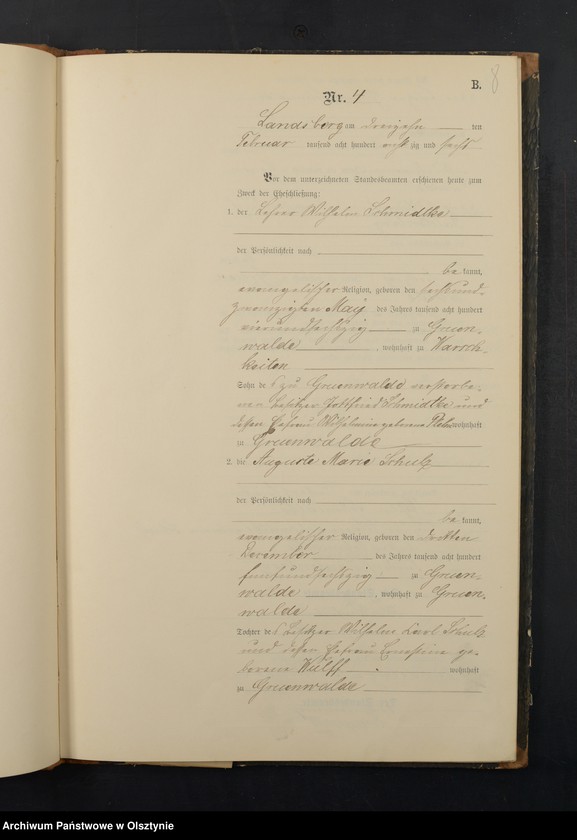 B. 8
Nr. 4
Landsberg am dreizehn ten
Februar tausend acht hundert achtzig und sechs
Vor dem unterzeichneten Standesbeamten erschienen heute zum
Zweck der Eheschließung:
1. der Lehrer Wilhelm Schmidtke
der Persönlichkeit nach
be kannt,
evangelischer Religion, geboren den sechsund-
zwanzigsten May des Jahres tausend acht hundert
vierundsechszig zu Gruen-
walde, wohnhaft zu Warsch-
keiten
Sohn des zu Gruenwalde verstorbe-
nen Besitzer Gottfried Schmidtke und
dessen Ehefrau Wilhelmine geborene wohnhaft
zu Gruenwalde
2. die Auguste Marie Schulz
der Persönlichkeit nach
be kannt,
evangelischer Religion, geboren den dritten
December des Jahres tausend acht hundert
fünfundsechszig zu Gruen-
walde, wohnhaft zu Gruen-
walde
Tochter des Besitzer Wilhelm Carl Schulz
und dessen Ehefrau Ernestine ge-
borene Wulff wohnhaft
zu Gruenwalde
Archiwum Państwowe w Olsztynie